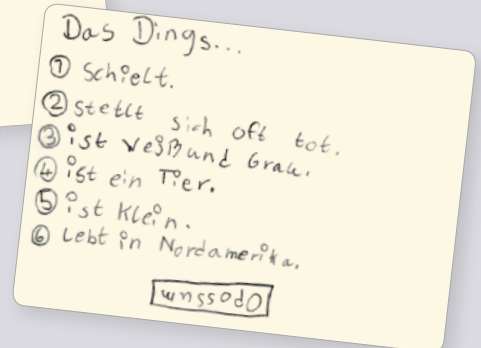 Das Dings...
① Schielt.
② stellt sich oft tot.
③ ist weiß und Grau.
④ ist ein Tier.
⑤ ist Klein.
⑥ Lebt in Nordamerika.
Opossum